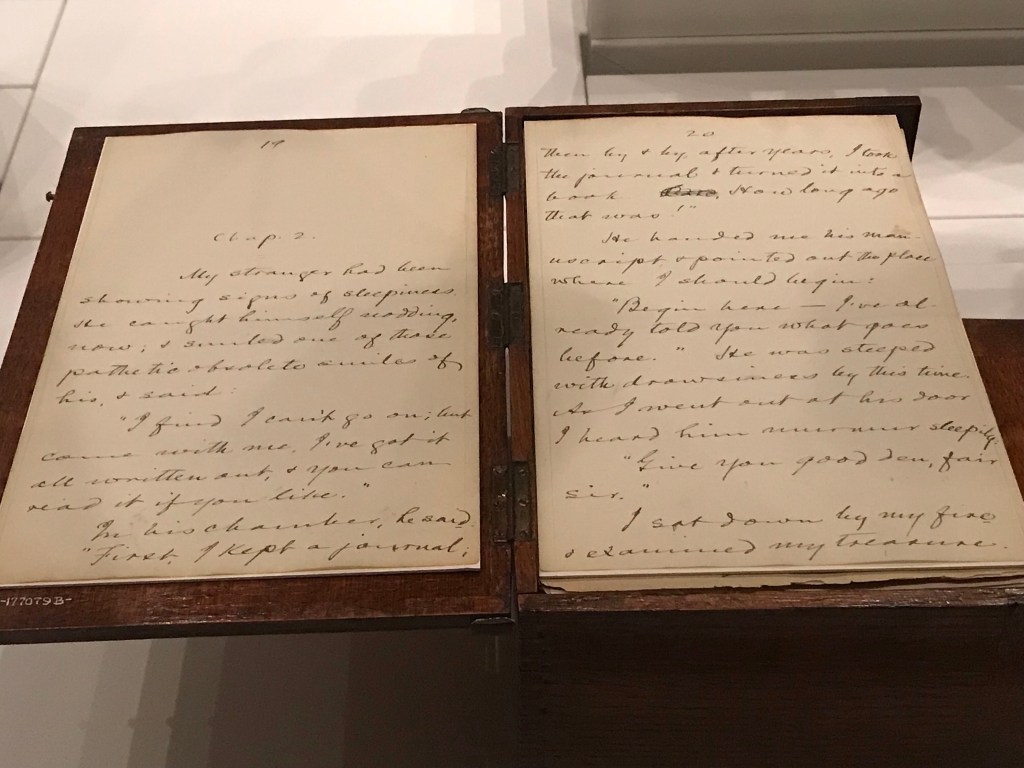 19
Chap. 2.
My stranger had been
showing signs of sleepiness.
He caught himself nodding,
now; & smiled one of those
pathetic obsolete smiles of
his, & said:
"I find I can't go on; but
come with me, I've got it
all written out, & you can
read it if you like."
In his chamber, he said:
"First, I kept a journal;
-177079B-
20
then by & by, after years, I took
the journal & turned it into a
book. How long ago
that was!"
He handed me his man-
uscript & pointed out the place
where I should begin:
"Begin here — I've al-
ready told you what goes
before." He was steeped
with drowsiness by this time.
As I went out at his door
I heard him murmur sleepily:
"Give you good den, fair
sir."
I sat down by my fire
& examined my treasure.